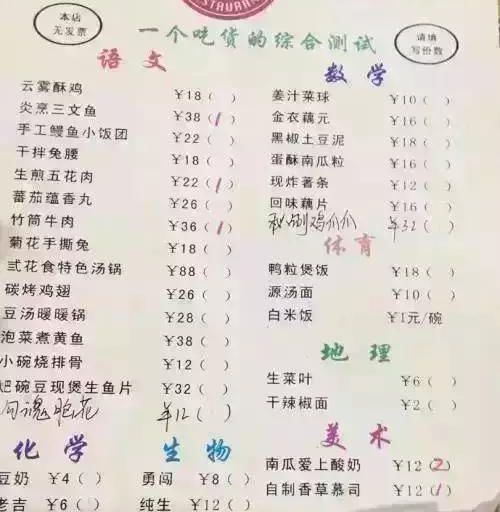 STAURAN
本店
无发票
一个吃货的综合测试
请填
写份数
语文
云雾酥鸡 ¥18( )
炎烹三文鱼 ¥38(1)
手工鳗鱼小饭团 ¥22( )
干拌兔腰 ¥18( )
生煎五花肉 ¥22(1)
蕃茄蕴香丸 ¥26( )
竹筒牛肉 ¥36(1)
菊花手撕兔 ¥18( )
弍花食特色汤锅 ¥88( )
碳烤鸡翅 ¥26( )
豆汤暖暖锅 ¥28( )
泡菜煮黄鱼 ¥38( )
小碗烧排骨 ¥12( )
粑碗豆现煲生鱼片 ¥32( )
勾魂脆花 ¥12( )
数学
姜汁菜球 ¥10( )
金衣藕元 ¥16( )
黑椒土豆泥 ¥18( )
蛋酥南瓜粒 ¥16( )
现炸薯条 ¥12( )
回味藕片 ¥16( )
秘制鸡爪爪 ¥32( )
体育
鸭粒煲饭 ¥18( )
源汤面 ¥10( )
白米饭 ¥1元/碗
地理
生菜叶 ¥6( )
干辣椒面 ¥2( )
化学
豆奶 ¥4( )
老吉 ¥6( )
生物
勇闯 ¥8( )
纯生 ¥12( )
美术
南瓜爱上酸奶 ¥12(2)
自制香草慕司 ¥12(1)